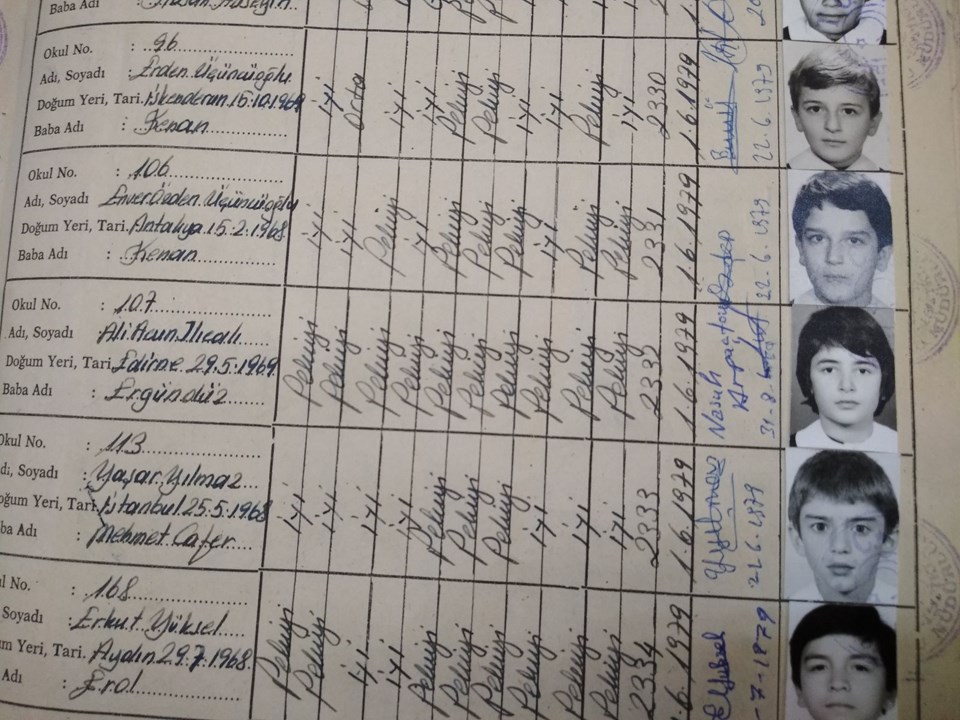 Baba Adı
Okul No. : 96
Adı, Soyadı : Erden Üçüncüoğlu
Doğum Yeri, Tari. İskenderun 15.10.1969
Baba Adı : Kenan
iyi Orta iyi iyi Pekiyi Pekiyi iyi iyi Pekiyi iyi 2330 1.6.1979
22.6.1979
Okul No. : 106
Adı, Soyadı Enver Özden Üçüncüoğlu
Doğum Yeri, Tari. Antakya 15.2.1968
Baba Adı : Kenan
iyi iyi Pekiyi iyi Pekiyi Pekiyi Pekiyi iyi Pekiyi Pekiyi 2331 1.6.1979
22.6.1979
Okul No. : 107
Adı, Soyadı Ali
Doğum Yeri, Tari. Edirne 29.5.1969
Baba Adı : Ergündüz
Pekiyi Pekiyi Pekiyi Pekiyi Pekiyi Pekiyi Pekiyi Pekiyi Pekiyi Pekiyi 1.6.1979
Nasuh
Okul No. : 113
Adı, Soyadı : Yaşar Yılmaz
Doğum Yeri, Tari. İstanbul 25.5.1968
Baba Adı : Mehmet Cafer
iyi iyi iyi iyi Pekiyi Pekiyi Pekiyi iyi iyi iyi 2333 1.6.1979
21.6.1979
Okul No. : 168
Soyadı : Erkut Yüksel
Yeri, Tari. Aydın 29.7.1968
Adı : Erol
Pekiyi Pekiyi iyi iyi Pekiyi Pekiyi Pekiyi Pekiyi Pekiyi Pekiyi 2334 .6.1979
-7-1979